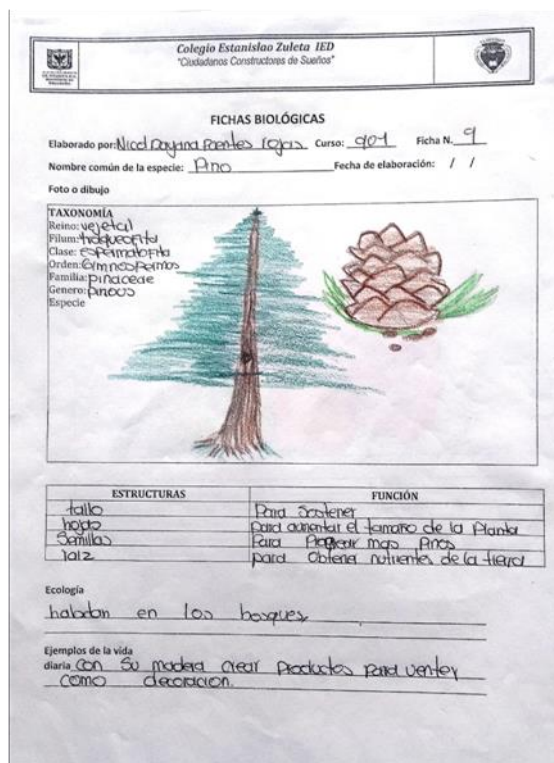 Colegio Estanislao Zuleta IED
"Ciudadanos Constructores de Sueños"
FICHAS BIOLÓGICAS
Elaborado por: Nicol Dayana Fuentes rojas Curso: 901 Ficha N. 9
Nombre común de la especie: Pino Fecha de elaboración: / /
Foto o dibujo
TAXONOMÍA
Reino: vejetal
Filum: traqueofita
Clase: espermatofita
Orden: Gimnospermas
Familia: pinaceae
Genero: pinous
Especie
ESTRUCTURAS FUNCIÓN
tallo Para Sostener
hojas para aumentar el tamaño de la Planta
Semillas Para mas Pinos
raiz para Obtener nutrientes de la tierra
Ecología
habitan en los bosques
Ejemplos de la vida
diaria Con su madera crear productos para venter
como decoracion.